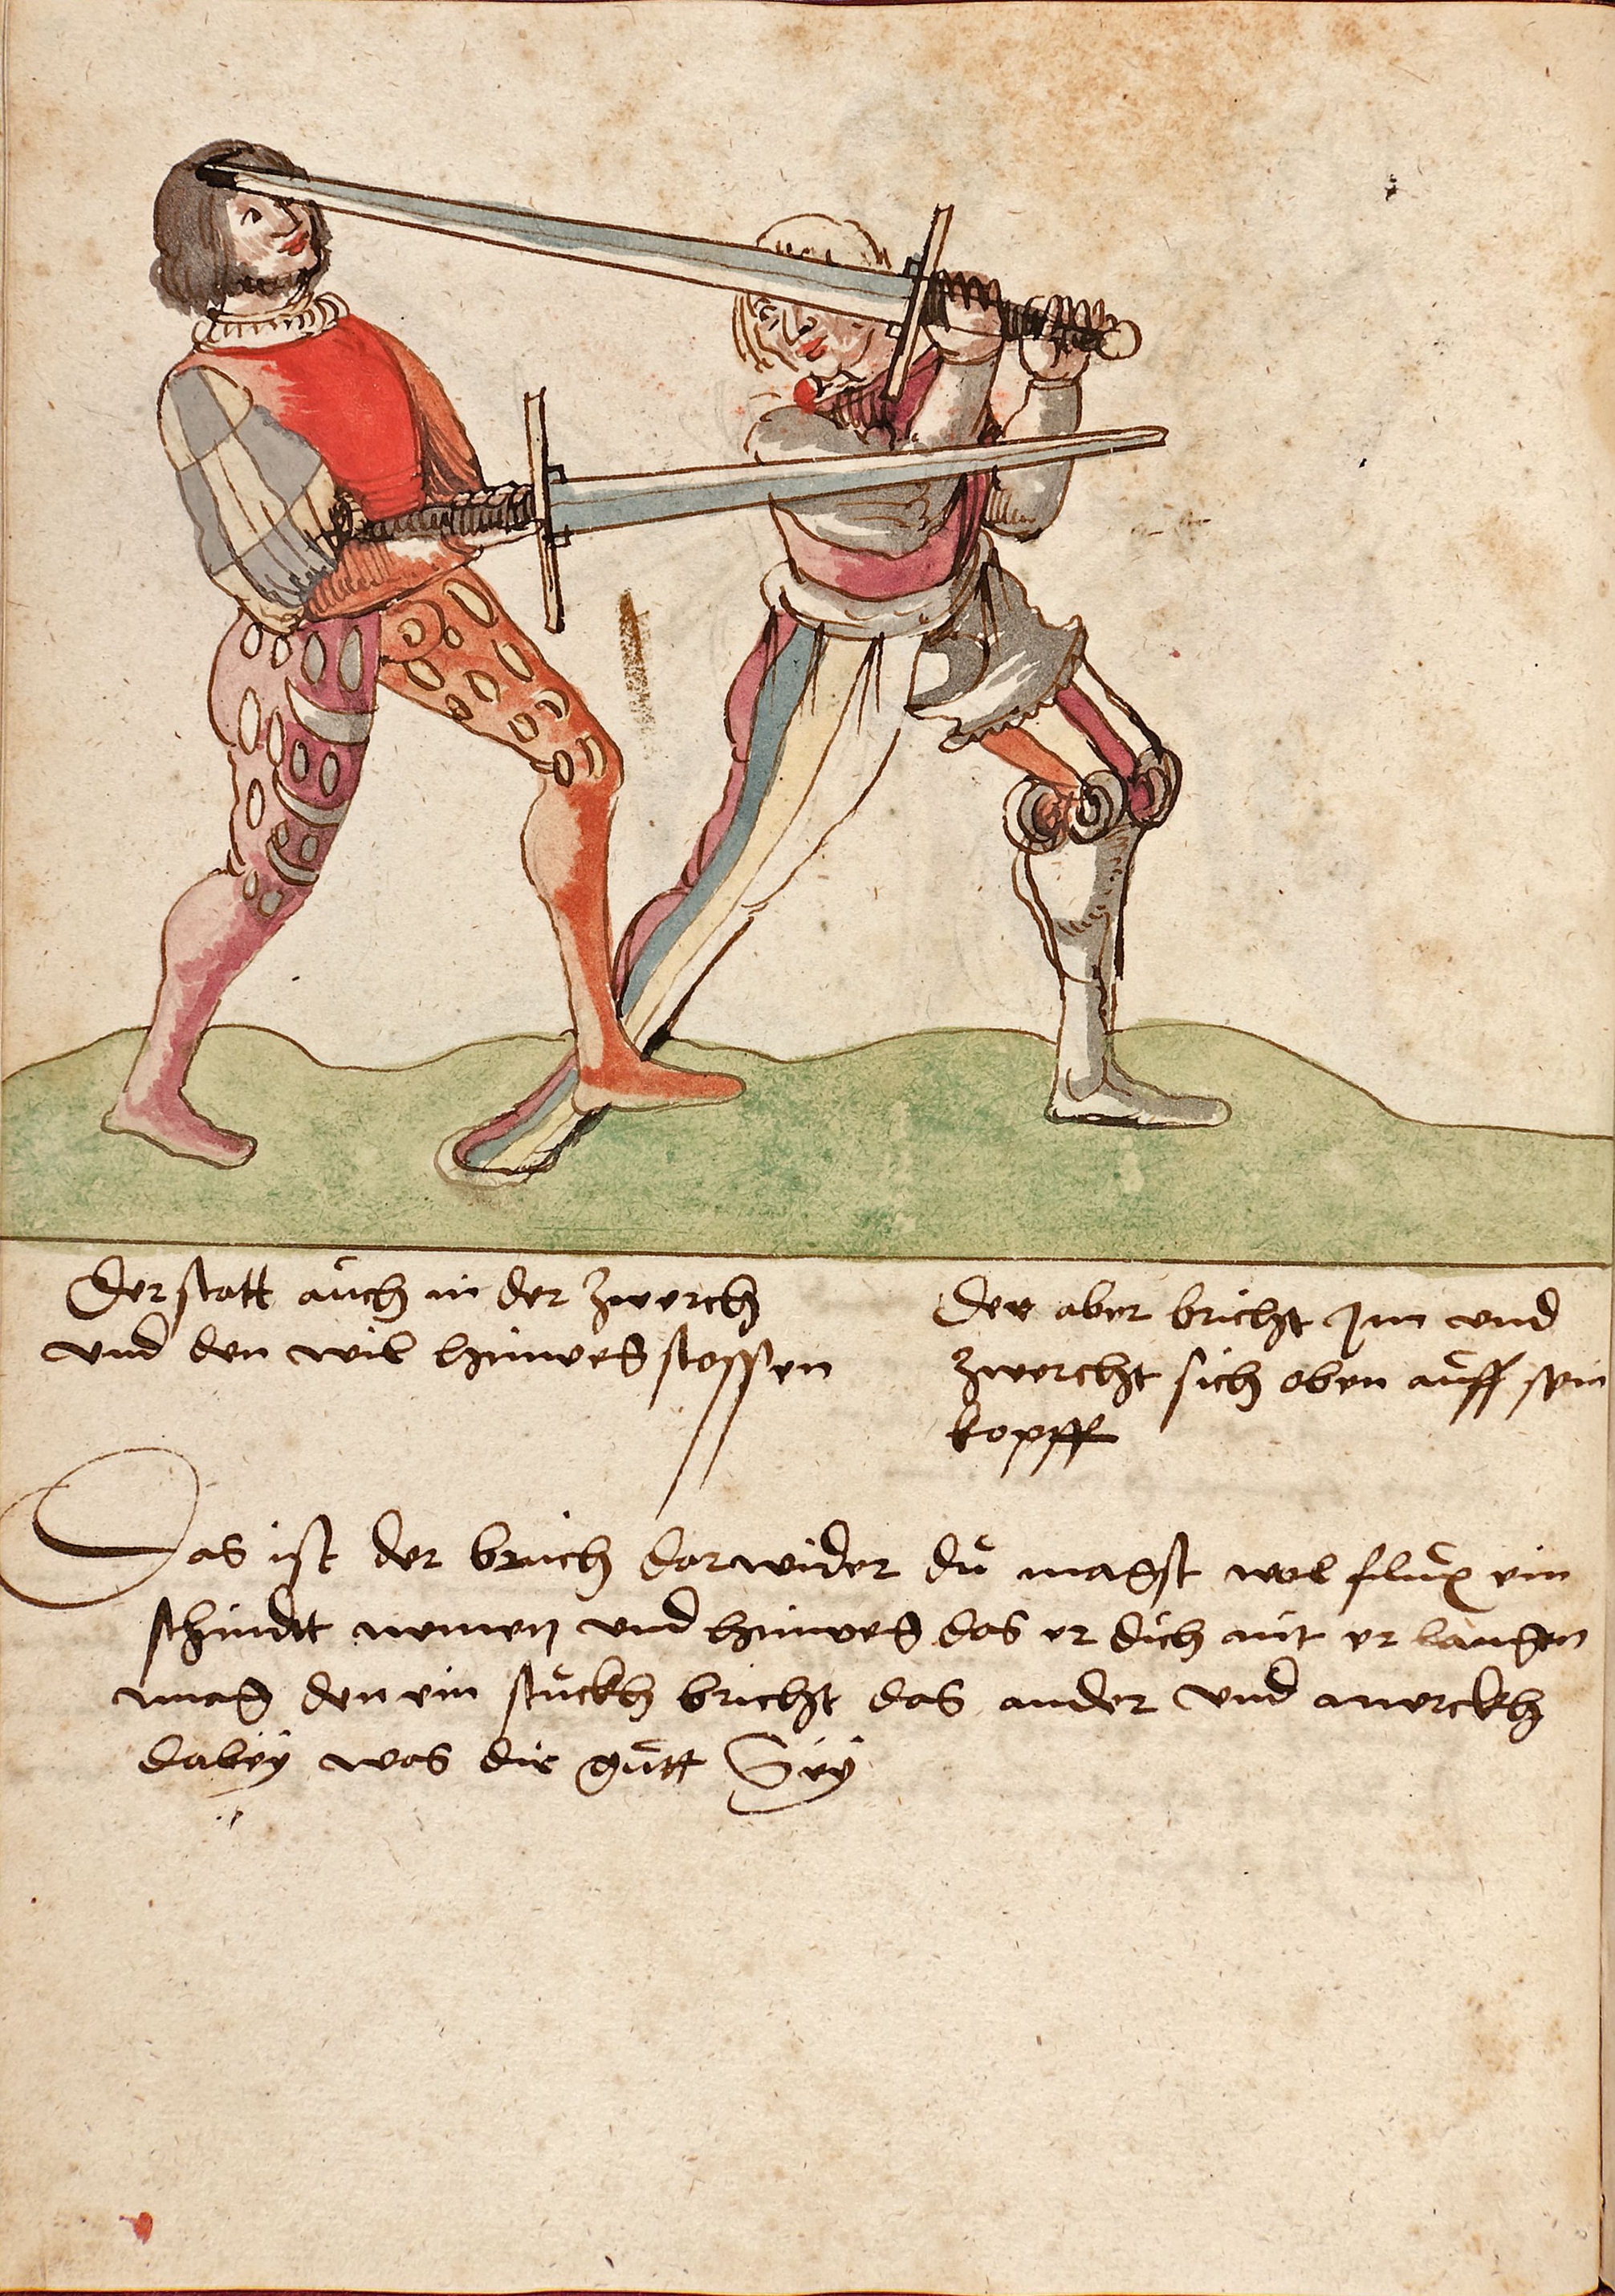 Der statt auch in der Zwerch
vnd den wil hinweg stossen
Der aber bricht Im vnd
Zwercht sich oben auff sein
kopff
Das ist der bruch darwider du magst wol flux ein
schnidtt nemen vnd hinweg das er dich nit er langen
mag den ein stuckh bricht das ander vnd merckh
dabey was dir gutt Sey